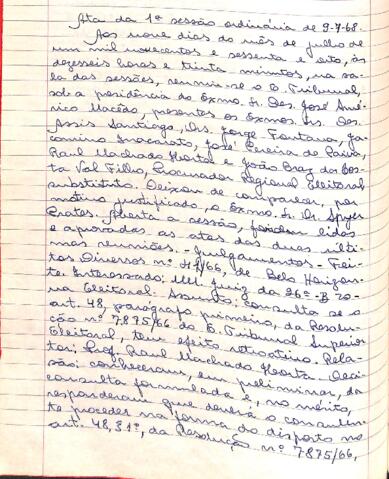 Ata da 1ª sessão ordinária de 9-7-68.
Aos nove dias do mês de julho de
um mil novecentos e sessenta e oito, às
dezesseis horas e trinta minutos, na sa-
la das sessões, reuniu-se o E. Tribunal,
sob a presidência do Exmo. Sr. Des. José Amé-
rico Macêdo, presentes os Exmos. Srs. Des.
Assis Santiago, Drs. Jorge Fontana, Ja-
comino Inacarato, José Pereira de Paiva,
Raul Machado Horta e João Braz da Cos-
ta Val Filho, Procurador Regional Eleitoral
substituto. Deixou de comparecer, por
motivo justificado, o Exmo. Sr. Dr.
Prates. Aberta a sessão, foram lidas
e aprovadas as atas das duas últi-
mas reuniões. - Julgamentos - Fei-
tos Diversos nº /66, de Belo Horizon-
te. Interessado: MM. Juiz da 26ª-B zo-
na Eleitoral. Assunto: consulta se o
art. 48, parágrafo primeiro, da Resolu-
ção nº 7875/66 do E. Tribunal Superior
Eleitoral, tem efeito retroativo. Rela-
tor: Prof. Raul Machado Horta. Deci-
são: conheceram, em preliminar, da
consulta formulada e, no mérito,
responderam que deverá o consulen-
te proceder na forma do disposto no
art. 48, § 1º, da Resolução nº 7875/66,